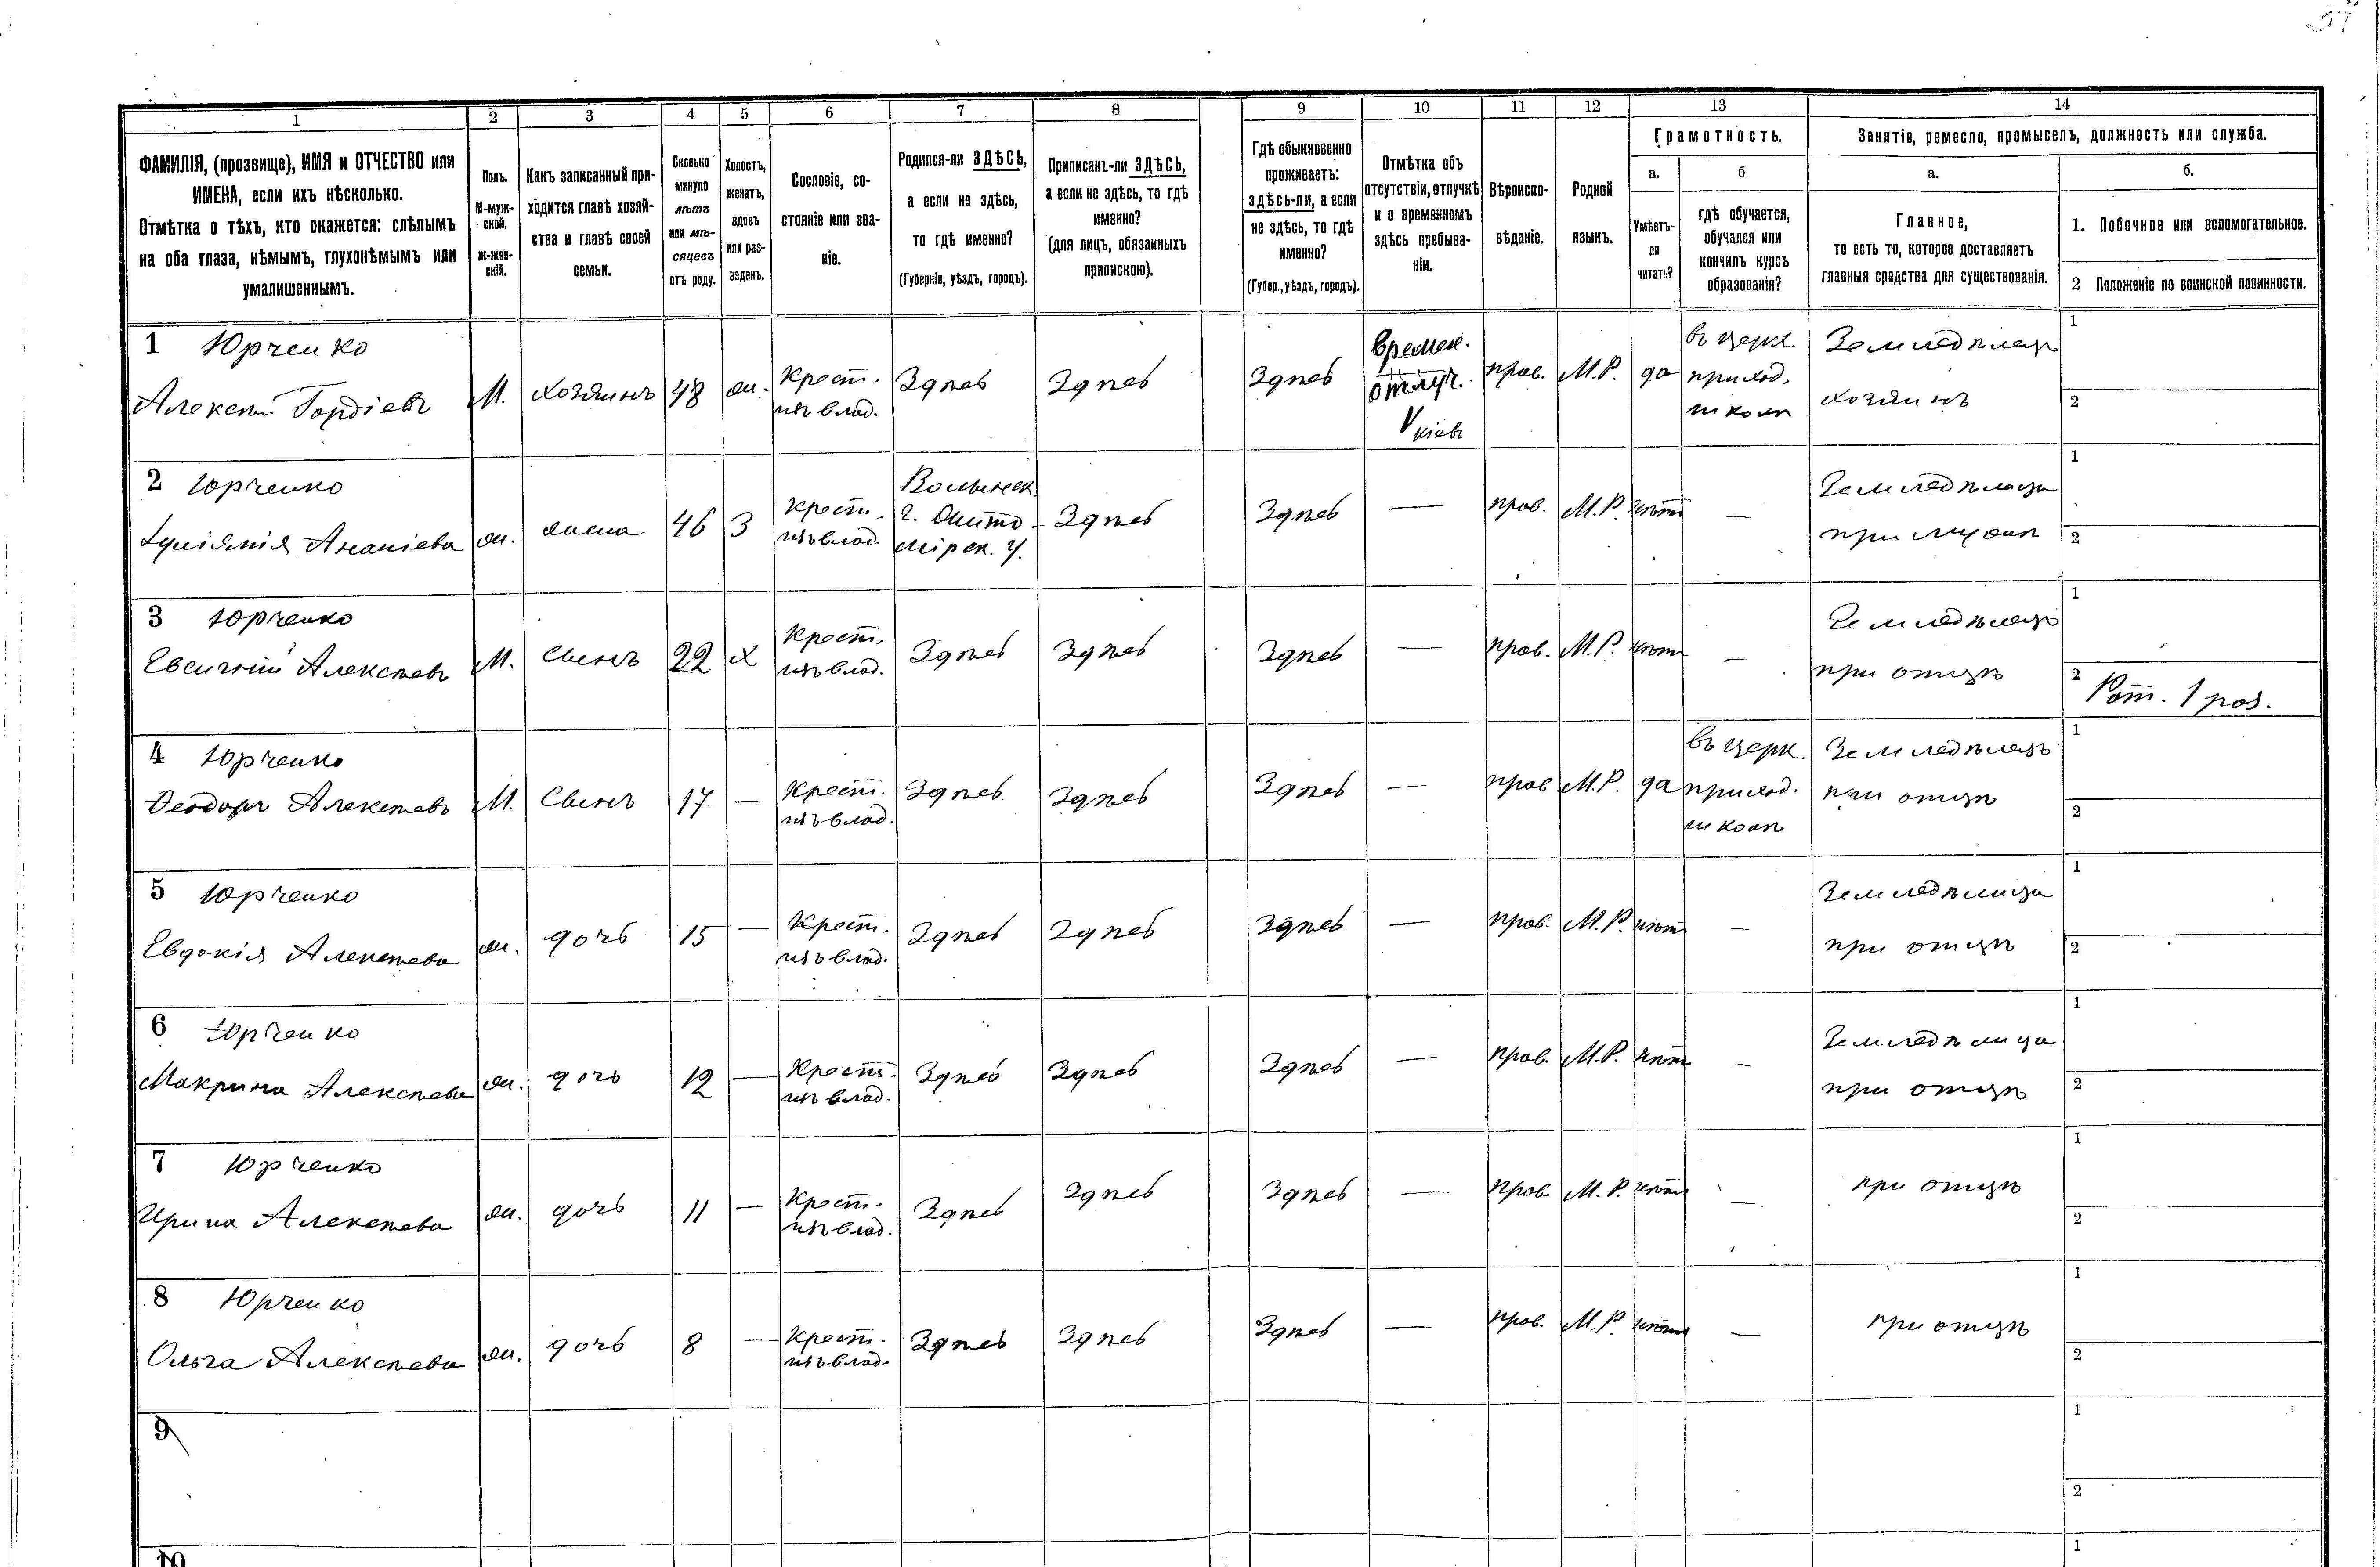 57
1 2 3 4 5 6 7 8 9 10 11 12 13 14
ФАМИЛІЯ, (прозвище), ИМЯ и ОТЧЕСТВО или
ИМЕНА, если ихъ нѣсколько.
Отмѣтка о тѣхъ, кто окажется: слѣпымъ
на оба глаза, нѣмымъ, глухонѣмымъ или
умалишеннымъ.
Полъ.
М-муж-
ской.
ж-жен-
скій.
Какъ записанный при-
ходится главѣ хозяй-
ства и главѣ своей
семьи.
Сколько
минуло
лѣтъ
или мѣ-
сяцевъ
отъ роду.
Холостъ,
женатъ,
вдовъ
или раз-
веденъ.
Сословіе, со-
стояніе или зва-
ніе.
Родился-ли ЗДѢСЬ,
а если не здѣсь,
то гдѣ именно?
(Губернія, уѣздъ, городъ).
Приписанъ-ли ЗДѢСЬ,
а если не здѣсь, то гдѣ
именно?
(для лицъ, обязанныхъ
припискою).
Гдѣ обыкновенно
проживаетъ:
здѣсь-ли, а если
не здѣсь, то гдѣ
именно?
(Губер., уѣздъ, городъ).
Отмѣтка объ
отсутствіи, отлучкѣ
и о временномъ
здѣсь пребыва-
ніи.
Вѣроиспо-
вѣданіе.
Родной
языкъ.
Грамотность.
а.
Умѣетъ-
ли
читать?
б.
гдѣ обучается,
обучался или
кончилъ курсъ
образованія?
Занятіе, ремесло, промыселъ, должность или служба.
а.
Главное,
то есть то, которое доставляетъ
главныя средства для существованія.
б.
1. Побочное или вспомогательное.
2 Положеніе по воинской повинности.
1 Юрченко
Алексѣй Гордіевъ
М. хозяинъ 48 ж. Крест.
изъ влад.
Здѣсь Здѣсь Здѣсь
Времен.
отлуч.
V кіевъ
прав. М.Р. да
въ церк.
приход.
школѣ
Земледѣлецъ
хозяинъ
1
2
2 Юрченко
Іуліянія Ананіева
ж. жена 46 З Крест.
изъ влад.
Волынск.
г. Жито-
мірск. у.
Здѣсь Здѣсь — прав. М.Р. нѣтъ —
Земледѣлица
при мужѣ
1
2
3 Юрченко
Евгеній Алексѣевъ
М. Сынъ 22 х Крест.
изъ влад.
Здѣсь Здѣсь Здѣсь — прав. М.Р. нѣтъ —
Земледѣлецъ
при отцѣ
1
2 Рат. 1 раз.
4 Юрченко
Ѳеодоръ Алексѣевъ
М. Сынъ 17 — Крест.
изъ влад.
Здѣсь Здѣсь Здѣсь — прав М.Р. да
въ церк.
приход.
школѣ
Земледѣлецъ
при отцѣ
1
2
5 Юрченко
Евдокія Алексѣева
ж. дочь 15 — Крест.
изъ влад.
Здѣсь Здѣсь Здѣсь — прав. М.Р. нѣтъ —
Земледѣлица
при отцѣ
1
2
6 Юрченко
Макрина Алексѣева
ж. дочь 12 — Крест.
изъ влад.
Здѣсь Здѣсь Здѣсь — прав. М.Р. нѣтъ —
Земледѣлица
при отцѣ
1
2
7 Юрченко
Ирина Алексѣева
ж. дочь 11 — Крест.
изъ влад.
Здѣсь Здѣсь Здѣсь — прав. М.Р. нѣтъ —
при отцѣ
1
2
8 Юрченко
Ольга Алексѣева
ж. дочь 8 — Крест.
изъ влад.
Здѣсь Здѣсь Здѣсь — прав. М.Р. нѣтъ —
при отцѣ
1
2
9
1
2
10
1